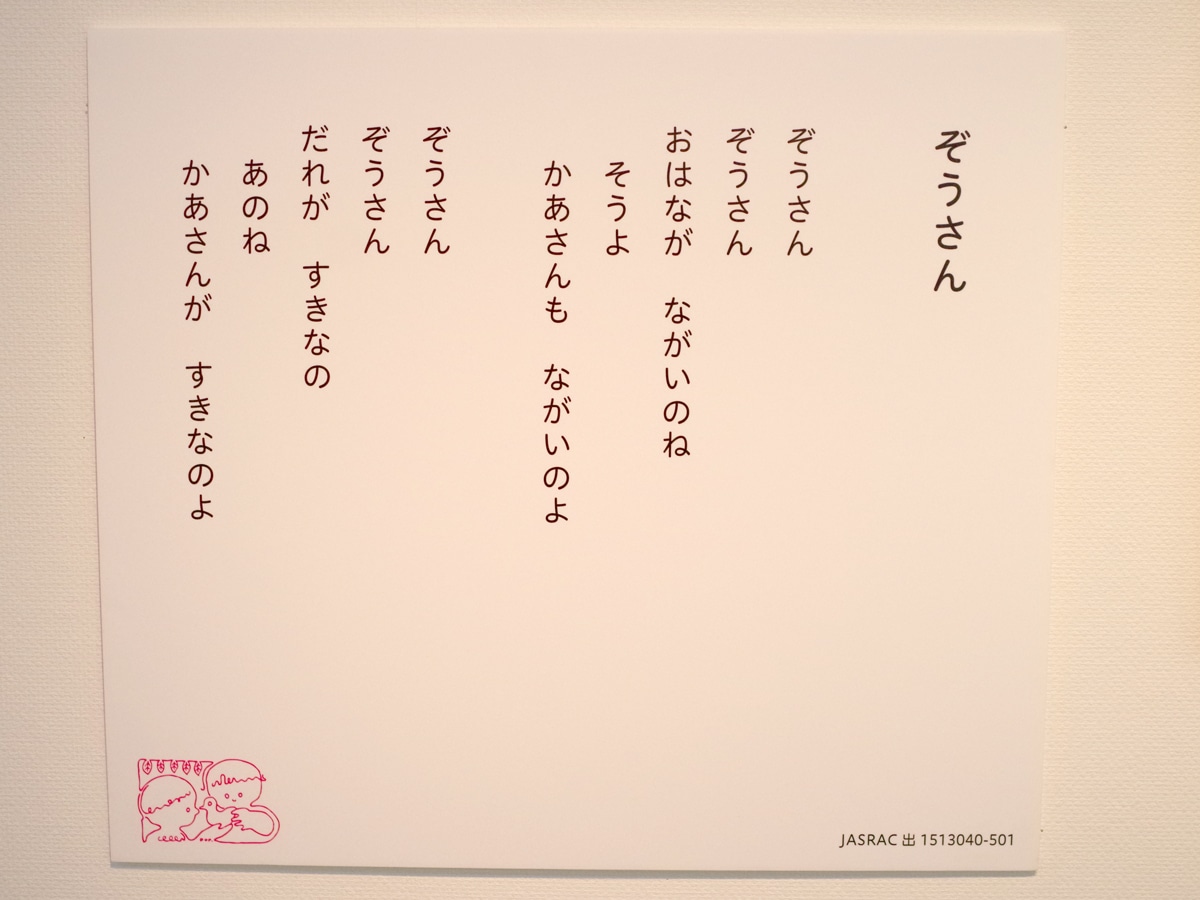 ぞうさん
ぞうさん
ぞうさん
おはなが　ながいのね
そうよ
かあさんも　ながいのよ
ぞうさん
ぞうさん
だれが　すきなの
あのね
かあさんが　すきなのよ
JASRAC 出 1513040-501